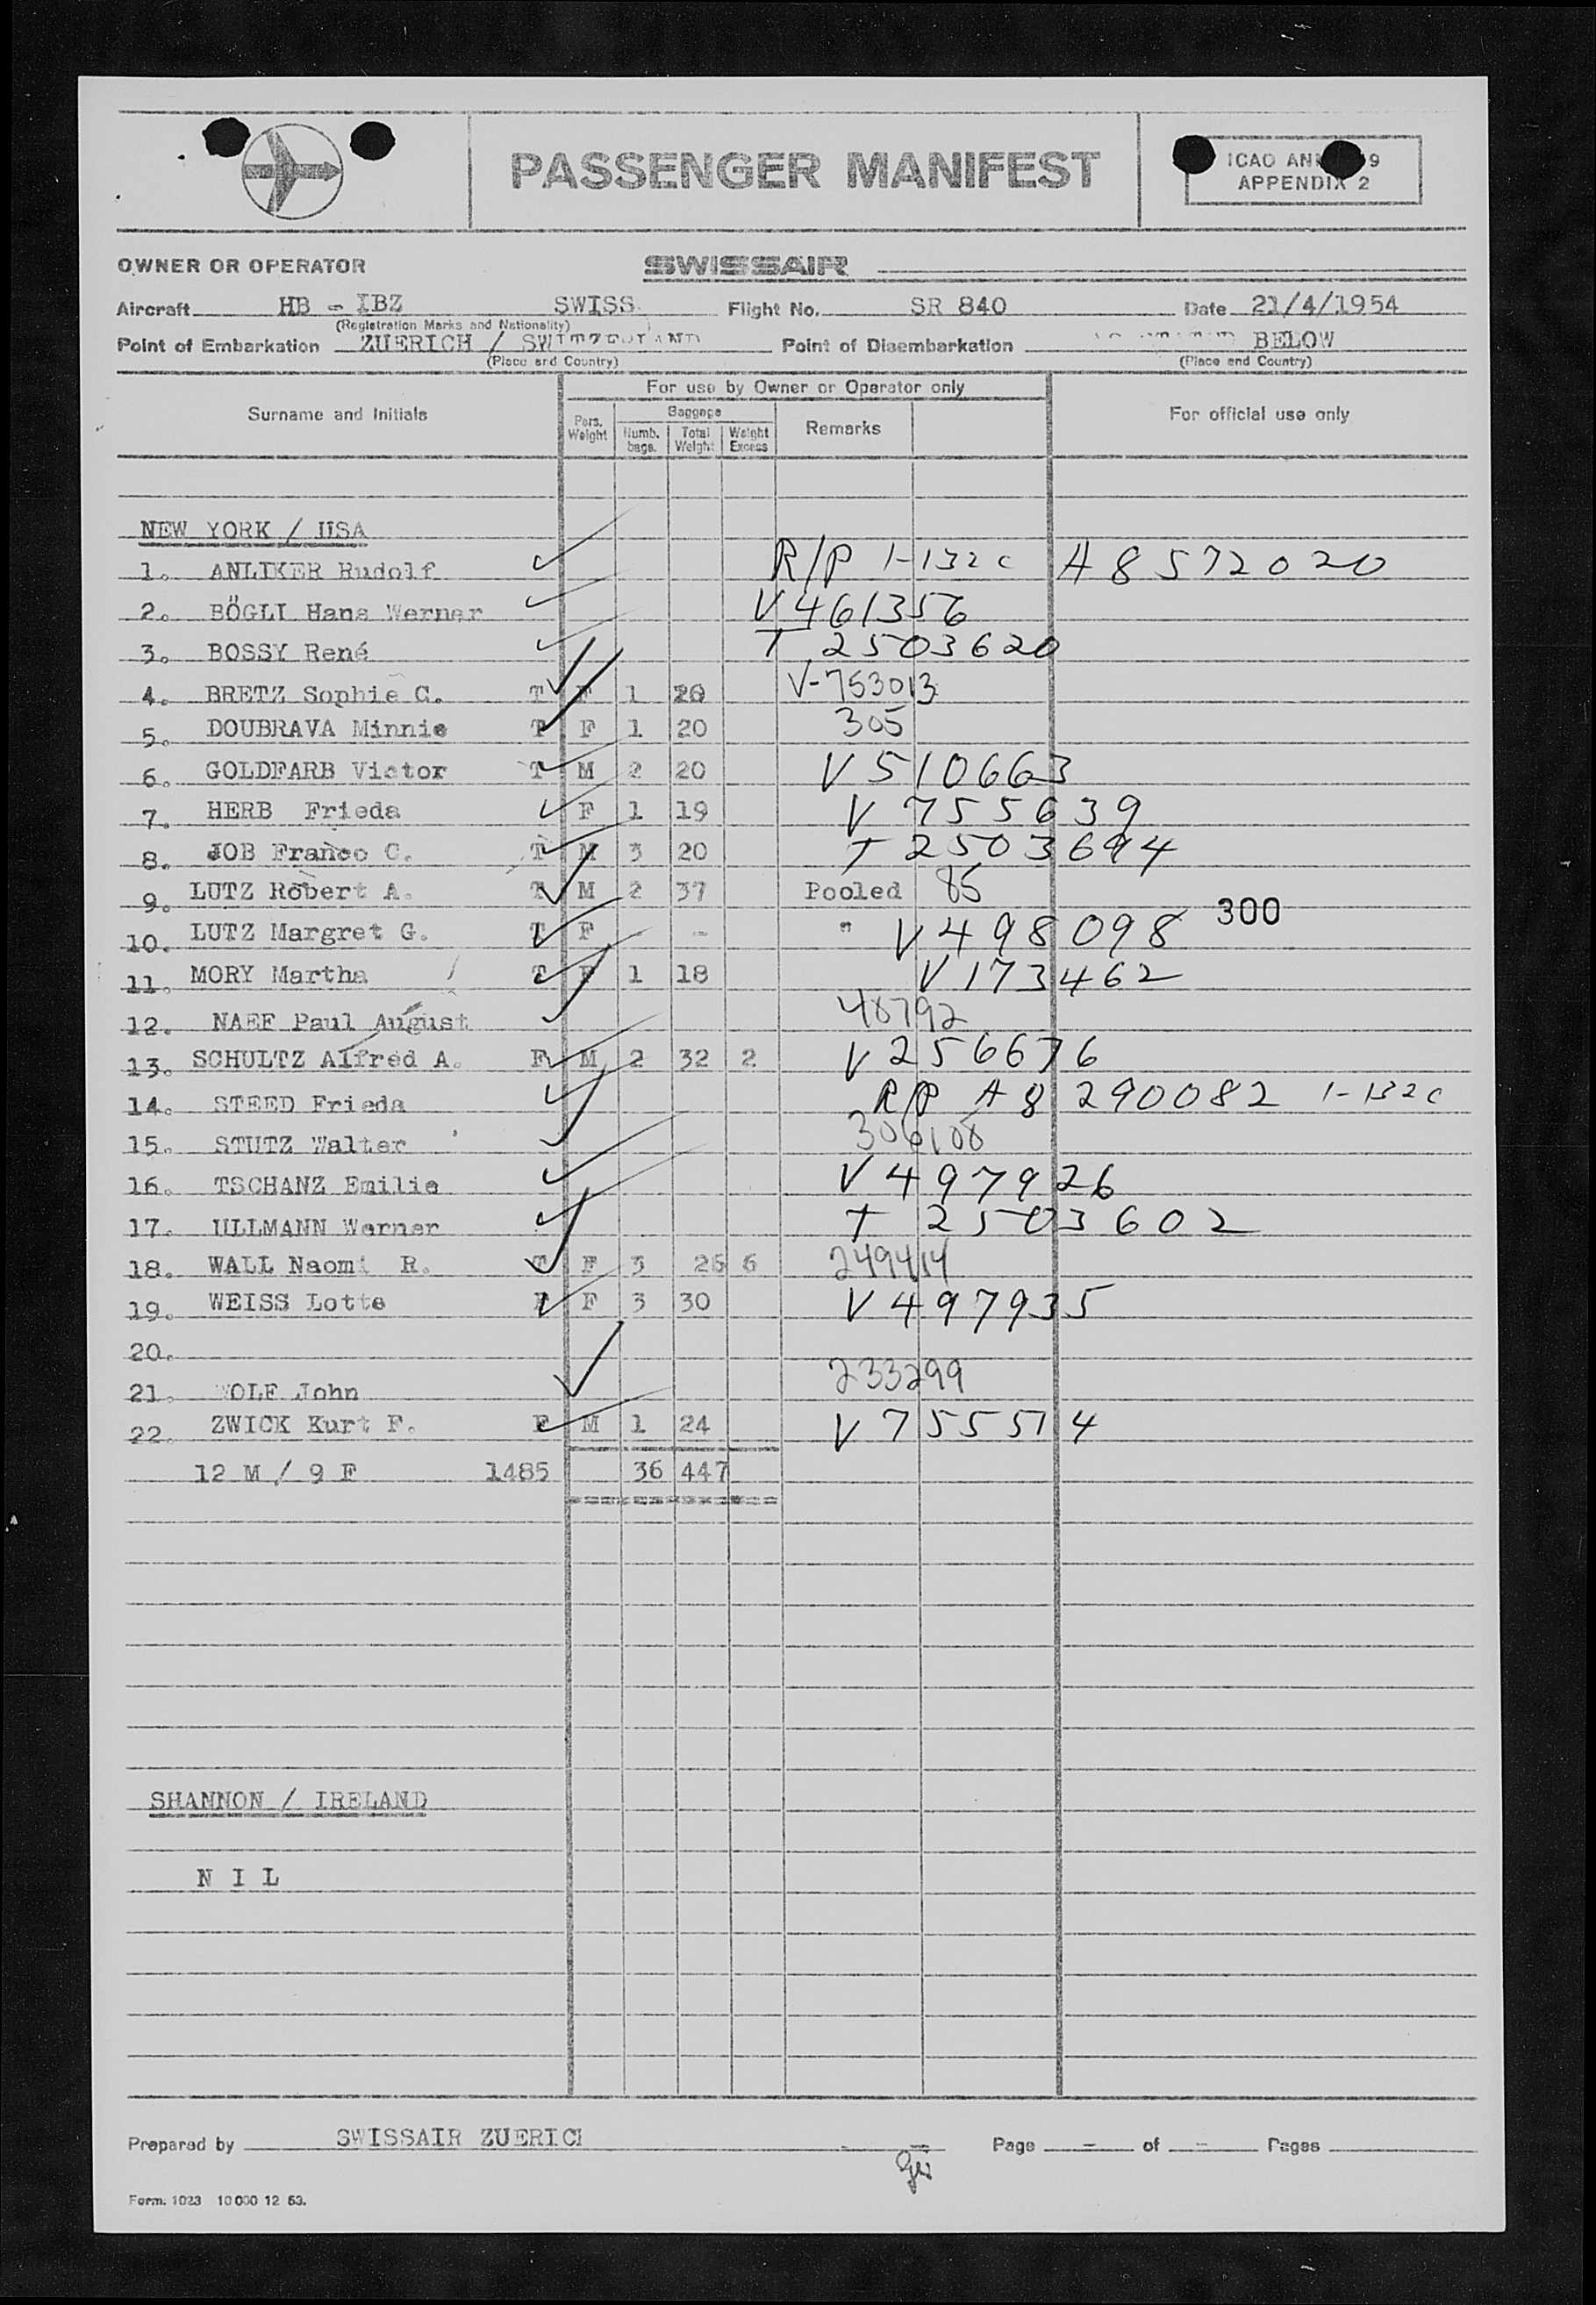 PASSENGER MANIFEST
ICAO 9
APPENDIX 2
OWNER OR OPERATOR SWISSAIR
Aircraft HB - IBZ SWISS Flight No. SR 840 Date 21/4/1954
(Registration Marks and Nationality)
Point of Embarkation ZUERICH / SWITZERLAND Point of Disembarkation BELOW
(Place and Country) (Place and Country)
For use by Owner or Operator only
Surname and Initials Pers. Weight Baggage Remarks For official use only
Numb. bags. Total Weight Weight Excess
NEW YORK / USA
1. ANLIKER Rudolf R/P 1-132c A 8 572020
2. BÖGLI Hans Werner V 461356
3. BOSSY René T 2503620
4. BRETZ Sophie C. T F 1 20 V-753013
5. DOUBRAVA Minnie T F 1 20 305
6. GOLDFARB Victor T M 2 20 V 510663
7. HERB Frieda F 1 19 V 755639
8. JOB Franco C. T M 3 20 T 2503694
9. LUTZ Robert A. T M 2 37 Pooled 85
300
10. LUTZ Margret G. T F - " V 498098
11. MORY Martha T F 1 18 V 173462
12. NAEF Paul August 48792
13. SCHULTZ Alfred A. F M 2 32 2 V 256676
14. STEED Frieda R/P A 8 290082 1-132c
15. STUTZ Walter 306108
16. TSCHANZ Emilie V 497926
17. ULLMANN Werner T 2503602
18. WALL Naomi R. T F 3 26 6 249414
19. WEISS Lotte F F 3 30 V 497935
20.
21. WOLF John 233299
22. ZWICK Kurt F. F M 1 24 V 755514
12 M / 9 F 1485 36 447
SHANNON / IRELAND
N I L
Prepared by SWISSAIR ZUERICH Page - of - Pages
Form. 1023 10 000 12 53.